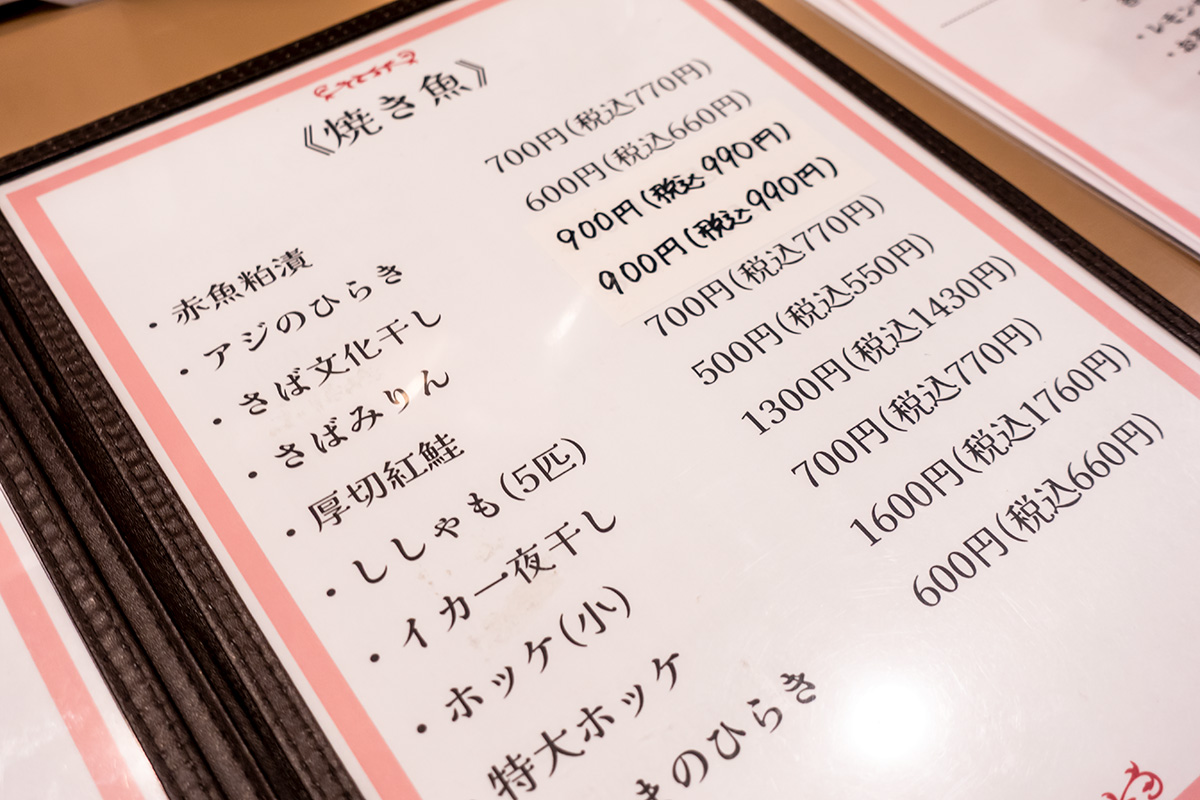 《焼き魚》
・赤魚粕漬 700円(税込770円)
・アジのひらき 600円(税込660円)
・さば文化干し 900円(税込990円)
・さばみりん 900円(税込990円)
・厚切紅鮭 700円(税込770円)
・ししゃも(5匹) 500円(税込550円)
・イカ一夜干し 1300円(税込1430円)
・ホッケ(小) 700円(税込770円)
特大ホッケ 1600円(税込1760円)
きのひらき 600円(税込660円)
・レモン